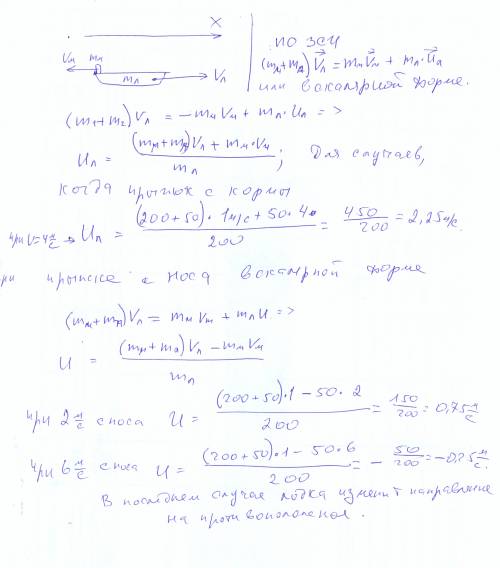 X
Vм mм
mл Vл
по ЗСИ
(mм+mл) Vл = mм Vм + mл · Uл
или в скалярной форме.
(m1+m2) Vл = −mм Vм + mл · Uл =>
Uл = ((mм+mл) Vл + mм · Vм) / mл ; Для случаев,
когда прыжок с кормы
при V=4 м/с → Uл = ((200+50) · 1 м/с + 50 · 4) / 200 = 450/200 = 2,25 м/с.
при прыжке с носа в скалярной форме
(mм+mл) Vл = mм Vм + mл U =>
U = ((mм+mл) Vл − mм Vм) / mл
при 2 м/с с носа U = ((200+50) · 1 − 50 · 2) / 200 = 150/200 = 0,75 м/с
при 6 м/с с носа U = ((200+50) · 1 − 50 · 6) / 200 = − 50/200 = −0,25 м/с.
В последнем случае лодка изменит направление
на противоположное.